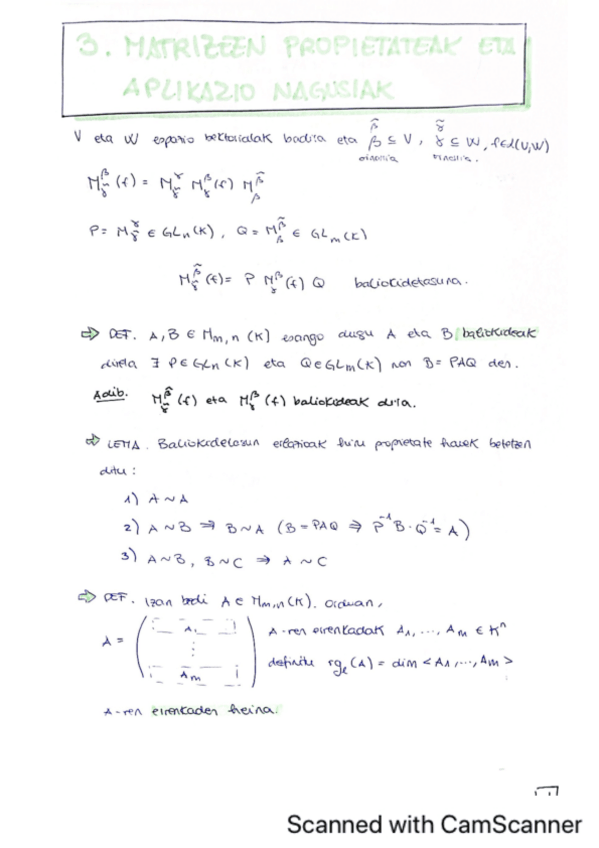 3. MATRIZEEN PROPIETATEAK ETA
APLIKAZIO NAGUSIAK
V eta W espazio bektorialak badira eta β, β̃ ⊆ V, γ, γ̃ ⊆ W, f∈L(V,W)
oinarria oinarria.
M^β̃_γ̃ (f) = M^γ_γ̃ M^β_γ (f) M^β̃_β
P = M^γ_γ̃ ∈ GL_n(K), Q = M^β̃_β ∈ GL_m(K)
M^β̃_γ̃ (f) = P M^β_γ (f) Q baliokidetasuna.
⇒ DEF. A, B ∈ M_{m,n} (K) esango dugu A eta B baliokideak
direla ∃ P∈GL_n(K) eta Q∈GL_m(K) non B = PAQ den.
Adib. M^β̃_γ̃ (f) eta M^β_γ (f) baliokideak dira.
⇒ LEMA. Baliokidetasun erlazioak hiru propietate hauek betetzen
ditu:
1) A ~ A
2) A ~ B ⇒ B ~ A (B = PAQ ⇒ P⁻¹ B · Q⁻¹ = A)
3) A ~ B, B ~ C ⇒ A ~ C
⇒ DEF. Izan bedi A ∈ M_{m,n}(K). Orduan,
A = ( A₁ ⋮ A_m ) A-ren errenkadak A₁, ..., A_m ∈ Kⁿ
definitu rg_e (A) = dim < A₁, ..., A_m >
A-ren errenkaden heina.
Scanned with CamScanner